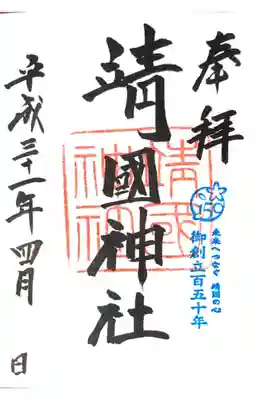 奉拝
150
未来へつなぐ 靖國の心
御創立百五十年
靖國神社
靖國
神社
平成三十一年 四月 日